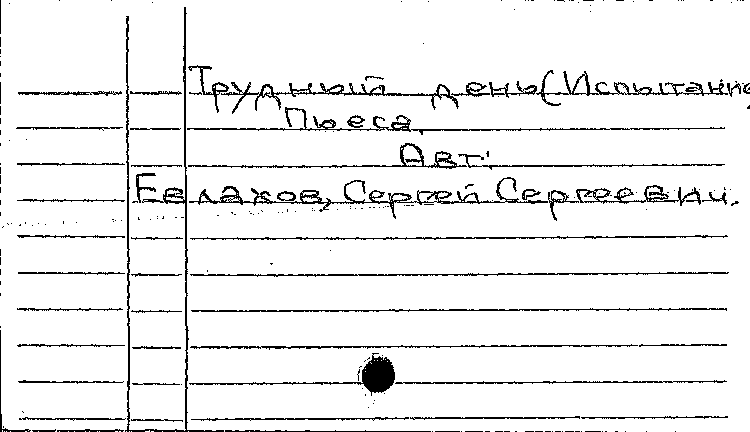 Трудный день (Испытание
Пьеса.
Авт.:
Евлахов, Сергей Сергеевич.